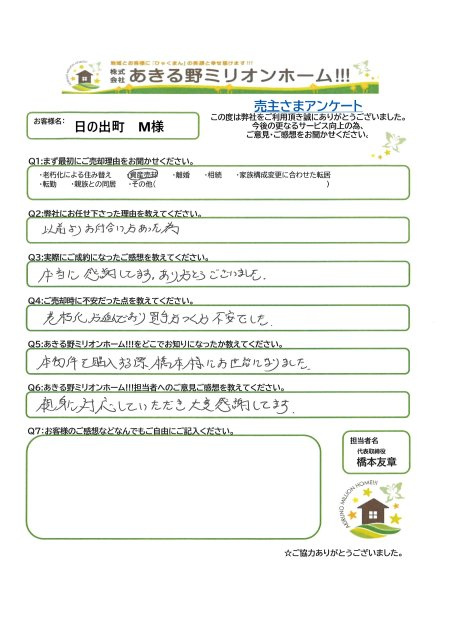 地域とお客様に「ひゃくまん」の笑顔と幸せ届けます!!!
株式会社 あきる野ミリオンホーム!!!
売主さまアンケート
お客様名: 日の出町 M様
この度は弊社をご利用頂き誠にありがとうございました。
今後の更なるサービス向上の為、
ご意見・ご感想をお聞かせください。
Q1:まず最初にご売却理由をお聞かせください。
・老朽化による住み替え ・資産売却 ・離婚 ・相続 ・家族構成変更に合わせた転居
・転勤 ・親族との同居 ・その他( )
Q2:弊社にお任せ下さった理由を教えてください。
以前よりお付合いがあった為
Q3:実際にご成約になったご感想を教えてください。
本当に感謝してます。ありがとうございました。
Q4:ご売却時に不安だった点を教えてください。
老朽化が進んであり買手がつくか不安でした。
Q5:あきる野ミリオンホーム!!!をどこでお知りになったか教えてください。
本物件を購入する際、橋本様にお世話になりました。
Q6:あきる野ミリオンホーム!!!担当者へのご意見ご感想を教えてください。
親身に対応していただき大変感謝してます。
Q7:お客様のご感想などなんでもご自由にご記入ください。
担当者名
代表取締役
橋本友章
AKIRUNO MILLION HOME!!!
☆ご協力ありがとうございました。